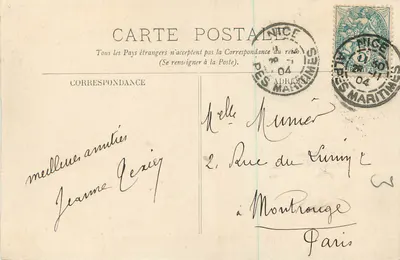 CARTE POSTALE
Tous les Pays étrangers n'acceptent pas la Correspondance au recto
(Se renseigner à la Poste).
CORRESPONDANCE
NICE
04
ALPES MARITIMES
NICE
04
ALPES MARITIMES
meilleures amitiés
Jeanne
Melle Munier
2, Rue du
à Montrouge
Paris
3